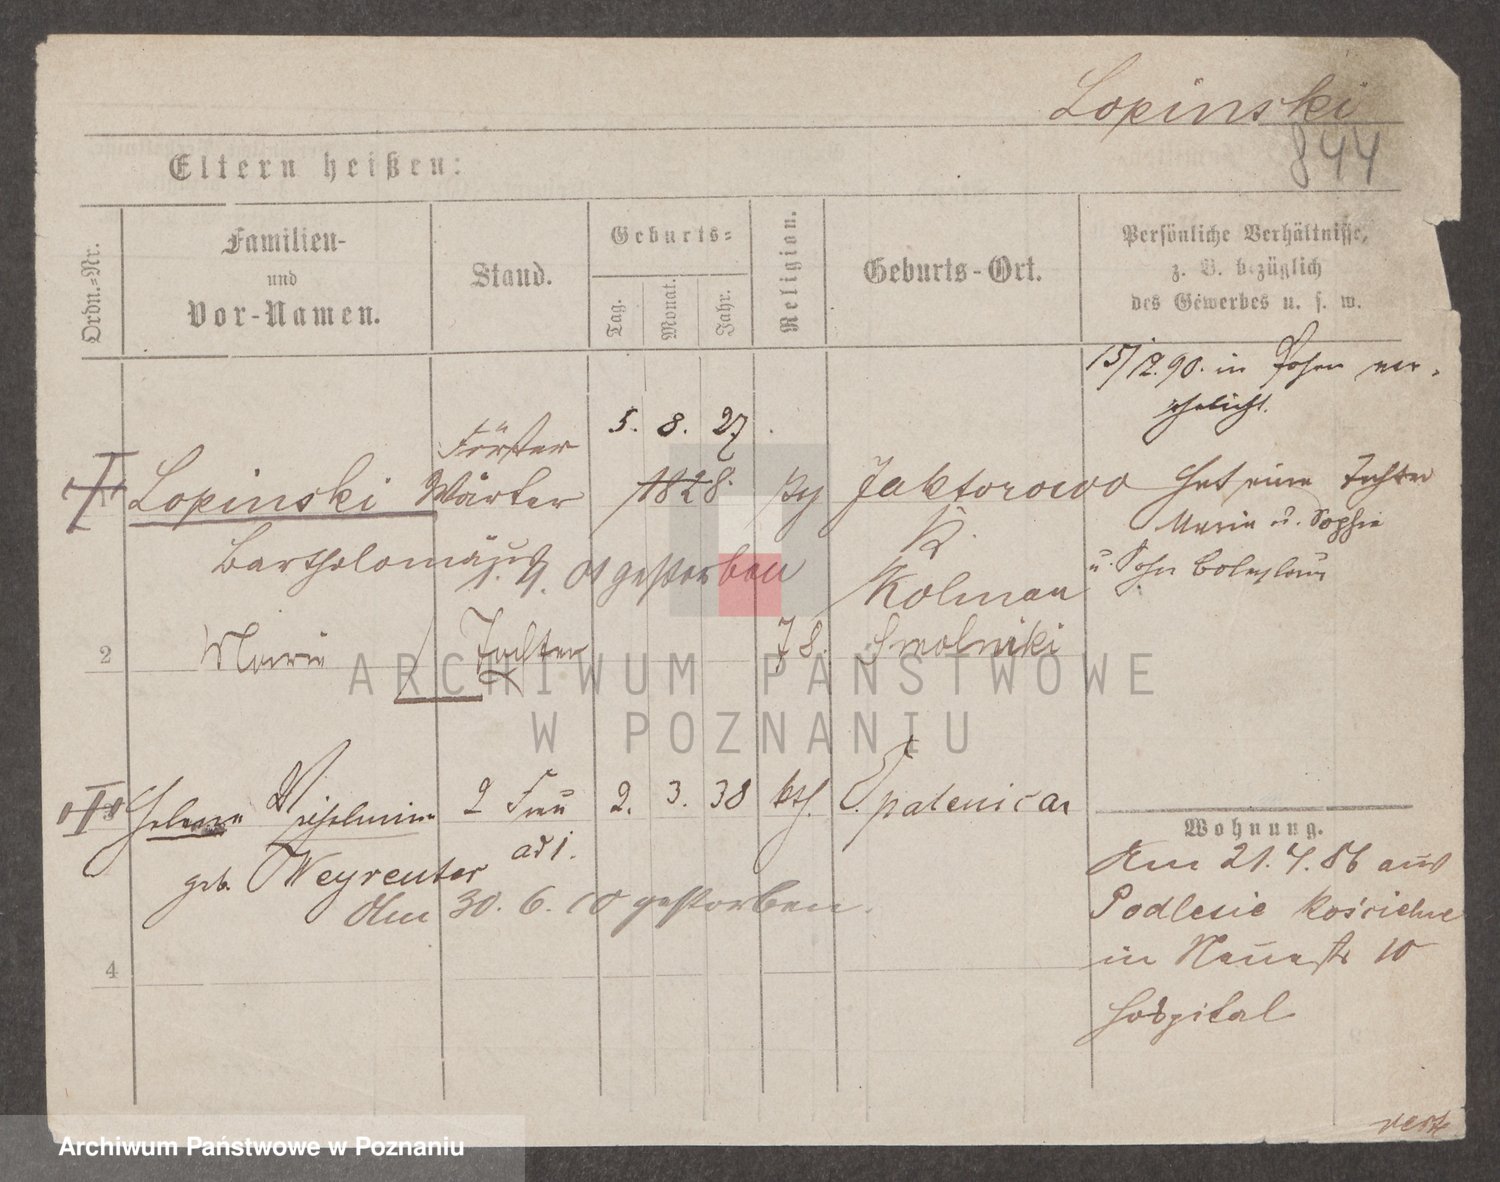 Lopinski
844
Eltern heißen:
Ordn.-Nr.
Familien-
und
Vor-Namen.
Stand.
Geburts-
Tag.
Monat.
Jahr.
Religion.
Geburts-Ort.
Persönliche Verhältnisse,
z. B. bezüglich
des Gewerbes u. s. w.
15/12.90. in Posen ver-
ehelicht.
Förster 5. 8. 27
Lopinski Wärter 1828. Jaktorowo hat eine Tochter
Marie u. Sophie
Bartholomäus gestorben K. u. Sohn Boleslaus
Kolmar
2 Marie Tochter Smolniki
ARCHIWUM PAŃSTWOWE
W POZNANIU
Helene Wilhelmine 2 Frau 2. 3. 38 kth. Opalenica
ad 1.
geb. Weyreuter
Am 30. 6. 10 gestorben.
4
Wohnung.
Am 21.4.86 aus
Podlesie Kościelne
in Neuestr 10
Hospital
Archiwum Państwowe w Poznaniu